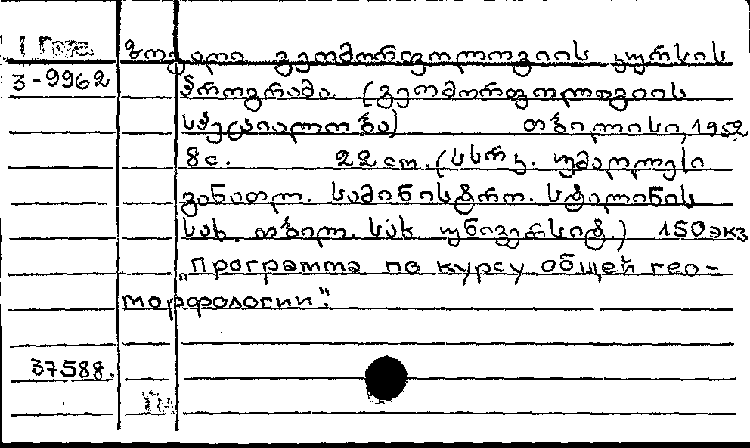 ზოგადი გეომორფოლოგიის კურსის
3-9962 პროგრამა. (გეომორფოლოგიის
სპეციალობა) თბილისი, 1952
8 с. 22 cm. (სსრკ. უმაღლესი
განათლ. სამინისტრო. სტალინის
სახ. თბილ. სახ. უნივერსიტ.) 150 экз
„Программа по курсу общей гео-
морфологии".
37588.